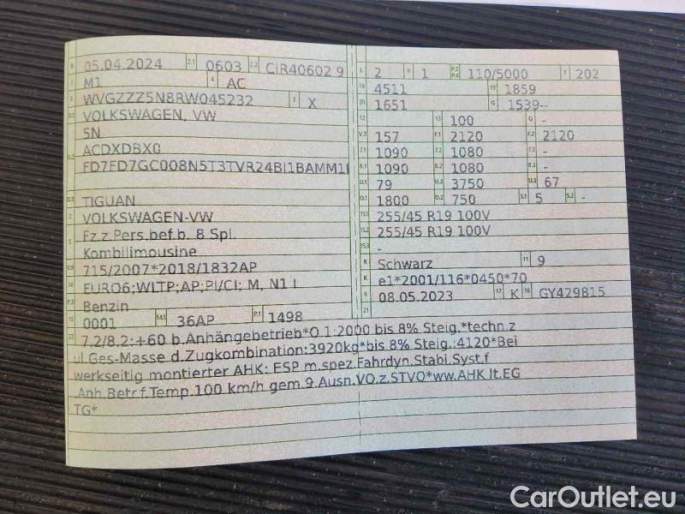 05.04.2024 0603 CIR40602 9
M1 AC
WVGZZZ5N8RW045232 X
VOLKSWAGEN, VW
5N
ACDXDBX0
FD7FD7GC008N5T3TVR24BI1BAMM1I
TIGUAN
VOLKSWAGEN-VW
Fz.z.Pers.bef.b. 8 Spl.
Kombilimousine
715/2007*2018/1832AP
EURO6;WLTP;AP;PI/CI; M, N1 I
Benzin
0001 36AP 1498
2 1 110/5000 202
4511 1859
1651 1539--
100 -
157 2120 2120
1090 1080 -
1090 1080 -
79 3750 67
1800 750 5 -
255/45 R19 100V
255/45 R19 100V
-
Schwarz 9
e1*2001/116*0450*70
08.05.2023 K GY429815
7.2/8.2:+60 b.Anhängebetrieb*O.1:2000 bis 8% Steig.*techn.z
ul.Ges-Masse d.Zugkombination:3920kg*bis 8% Steig.:4120*Bei
werkseitig montierter AHK: ESP m.spez.Fahrdyn.Stabl.Syst.f
.Anh.Betr.f.Temp.100 km/h gem.9.Ausn.VO.z.STVO*ww.AHK lt.EG
TG*
CarOutlet.eu